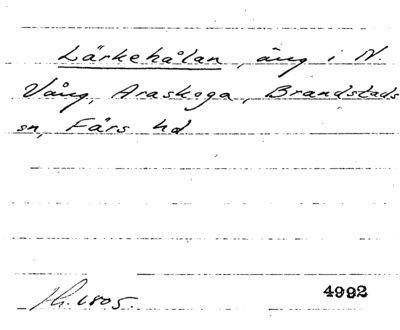 Lärkehålan, äng i N.
Vång, Araskoga, Brandstads
sn, Färs hd
Hh. 1805.
4992